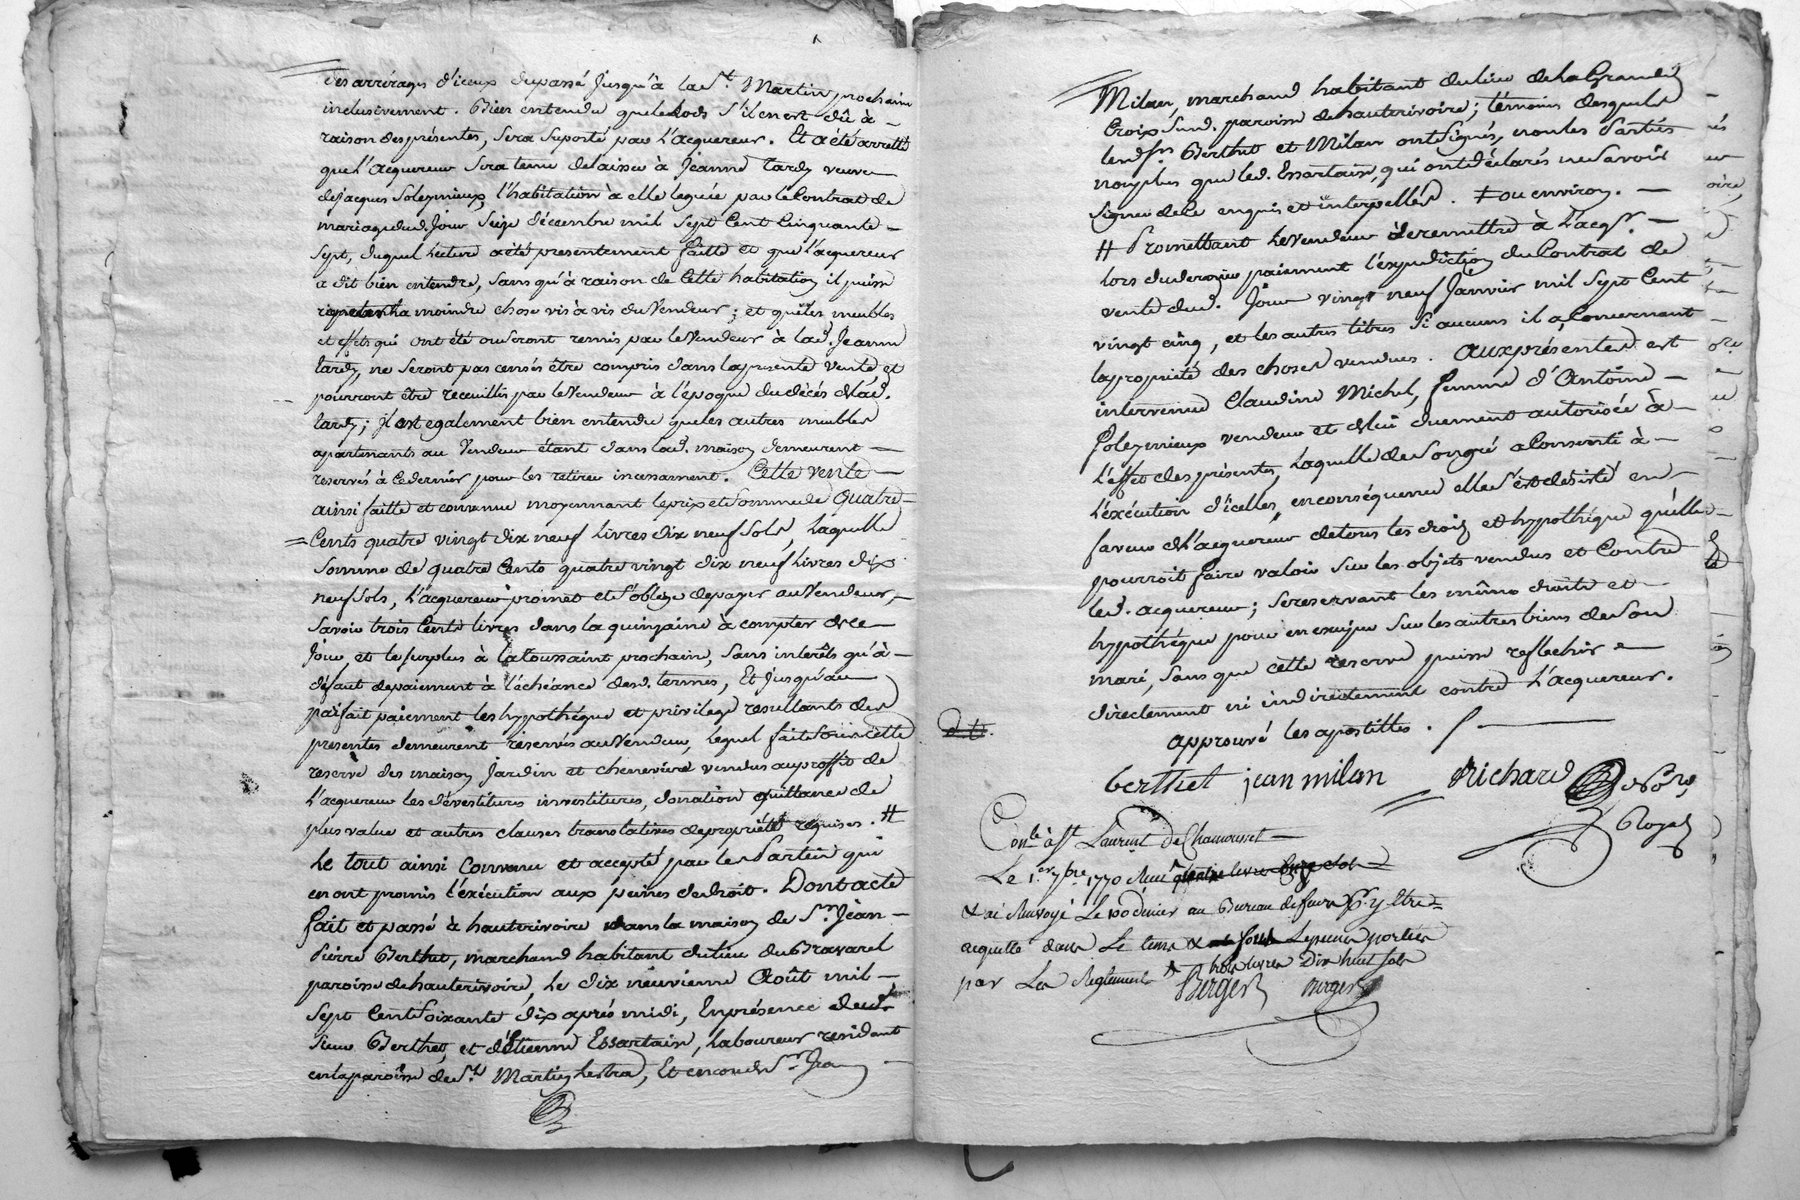 des arrérages d'iceux du passé jusqu'à la St. Martin prochain
inclusivement. Bien entendu que le lods s'il en est dû à
raison des présentes, sera suporté par l'acquereur. Et a été arretté
que l'acquereur sera tenu de laisser à Jeanne Tardy veuve
de Jacques Soleymieux, l'habitation à elle leguée par le Contrat de
mariage dud. jour seize décembre mil sept cent cinquante
sept, duquel lecture a été presentement faitte et que l'acquereur
a dit bien entendre, sans qu'à raison de cette habitation il puisse
la moindre chose vis à vis du Vendeur; et que les meubles
et effets qui ont été ou seront remis par le Vendeur à lad. Jeanne
tardy, ne seront pas censés être compris dans la presente vente et
pourront être recueillis par le Vendeur à l'époque du décés de lad.
tardy; il est egalement bien entendu que les autres meubles
apartenants au Vendeur étant dans lad. maison demeurent
reservés à ce dernier pour les retirer incessament. Cette vente
ainsi faitte et convenue moyennant le prix et somme de quatre
Cents quatre vingt dix neuf livres dix neuf sols, laquelle
somme de quatre Cents quatre vingt dix neuf livres dix
neuf sols, l'acquereur promet et s'oblige de payer au Vendeur,
savoir trois Cents livres dans la quinzaine à compter de ce
jour, et le surplus à la toussaint prochain, sans interêts qu'à
défaut de paiement à l'échéance desd. termes, Et jusqu'au
parfait paiement les hypothéque et privilege resultants des
presentes demeurent réservés au Vendeur, lequel fait sous cette
reserve des maison jardin et cheneviere vendus au proffit de
l'acquereur les dévestitures investitures, donation quittance de
plus value et autres clauses translatives de propriété requises. #
Le tout ainsi convenu et accepté par les Parties qui
en ont promis l'éxécution aux peines de droit. Dont acte
fait et passé à hauterivoire dans la maison de Sr. Jean
Pierre Berthet, marchand habitant du lieu du Bravarel
paroisse de hauterivoire, le dix neuvieme Août mil
sept Cent soixante dix après midi, En présence dud.
Sieur Berthet, et d'Etienne Essartain, laboureur residant
en la paroisse de St. Martin Lestra, Et encore de Sr. Jean
Milan, marchand habitant du lieu de la Grande
Croix Susd. paroisse de hauterivoire; témoins desquels
lesd. Srs. Berthet et Milan ont signés, non les Parties
non plus que led. Essartain, qui ont déclarés ne savoir
signer de ce enquis et interpellés. ‡ ou environ.
# Promettant le Vendeur de remettre à l'acqr.
lors du dernier paiement l'éxpedition du Contrat de
vente dud. jour vingt neuf Janvier mil sept cent
vingt cinq, et les autres titres si aucuns il a, concernant
la propriété des choses vendues. Aux présentes est
intervenue Claudine Michel, femme d'Antoine
Soleymieux vendeur et de lui duement autorisée à
l'effet des présentes, laquelle de son gré a consenti à
l'éxécution d'icelles, en conséquence elle s'est desisté en
faveur de l'acquereur de tous les droits et hypothéque qu'elle
pourroit faire valoir sur les objets vendus et contre
led. acquereur; se reservant les mêmes droits et
hypothéque pour en exiger sur les autres biens de son
mari, sans que cette reserve puisse reflechir
directement ni indirectement contre l'acquereur.
approuvé les apostilles.
berthet jean milan Richard
Royal
Conlé. à St Laurent de Chamousset
Le 1er. 7bre. 1770 Reçu
& ai Renvoyé Le 100 denier au Bureau de
acquitté dans Le tems & Les peines portées
par Les Reglements
trois livres Dix huit sols
Berger Berger